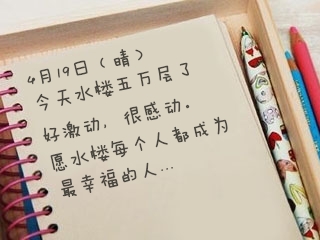 4月19日（晴）
今天水楼五万层了
好激动，很感动。
愿水楼每个人都成为
最幸福的人…